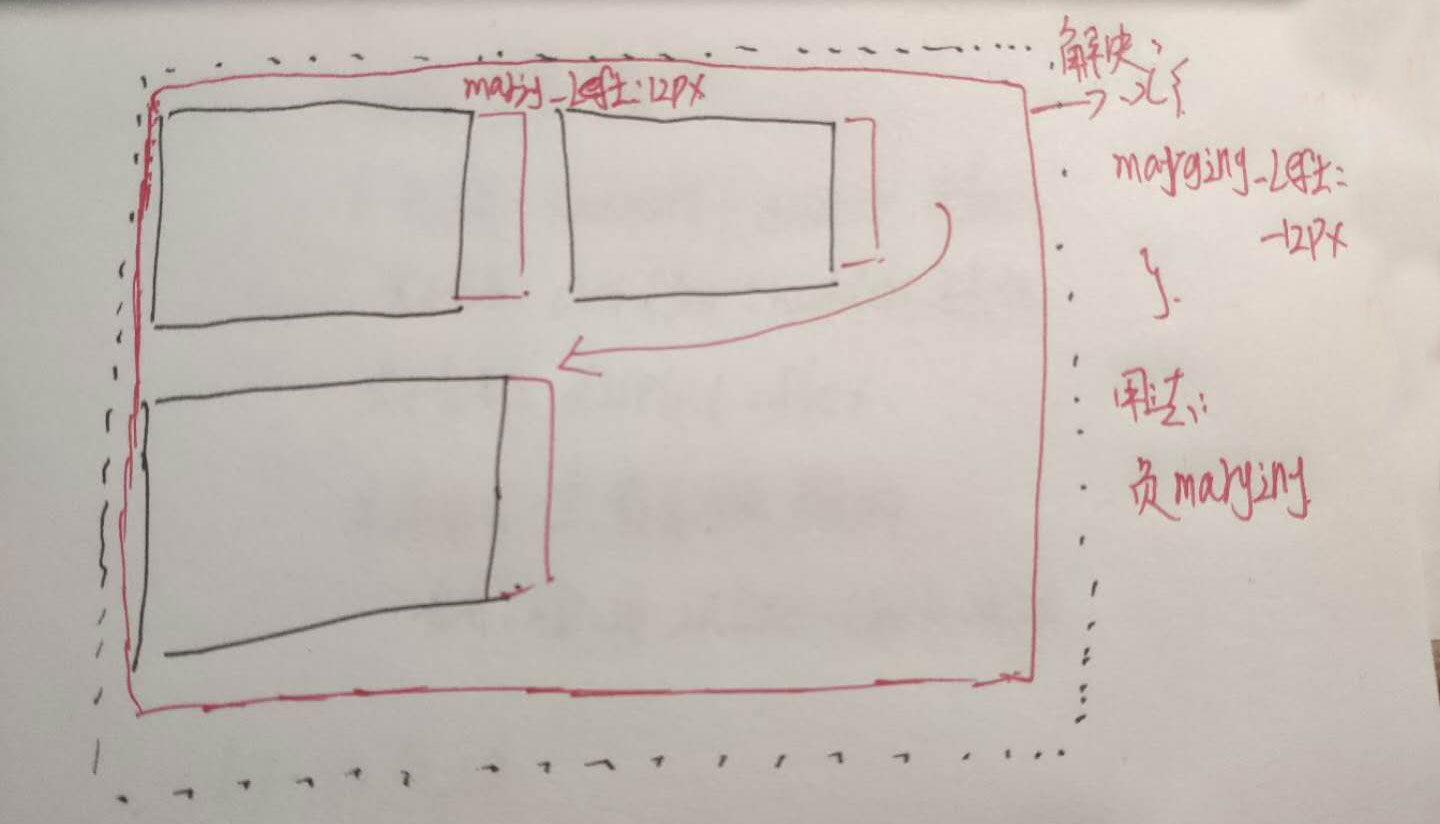 margin-left:12px
解决:
→ .x{
marging-left:
-12px
}.
用法:
负marging